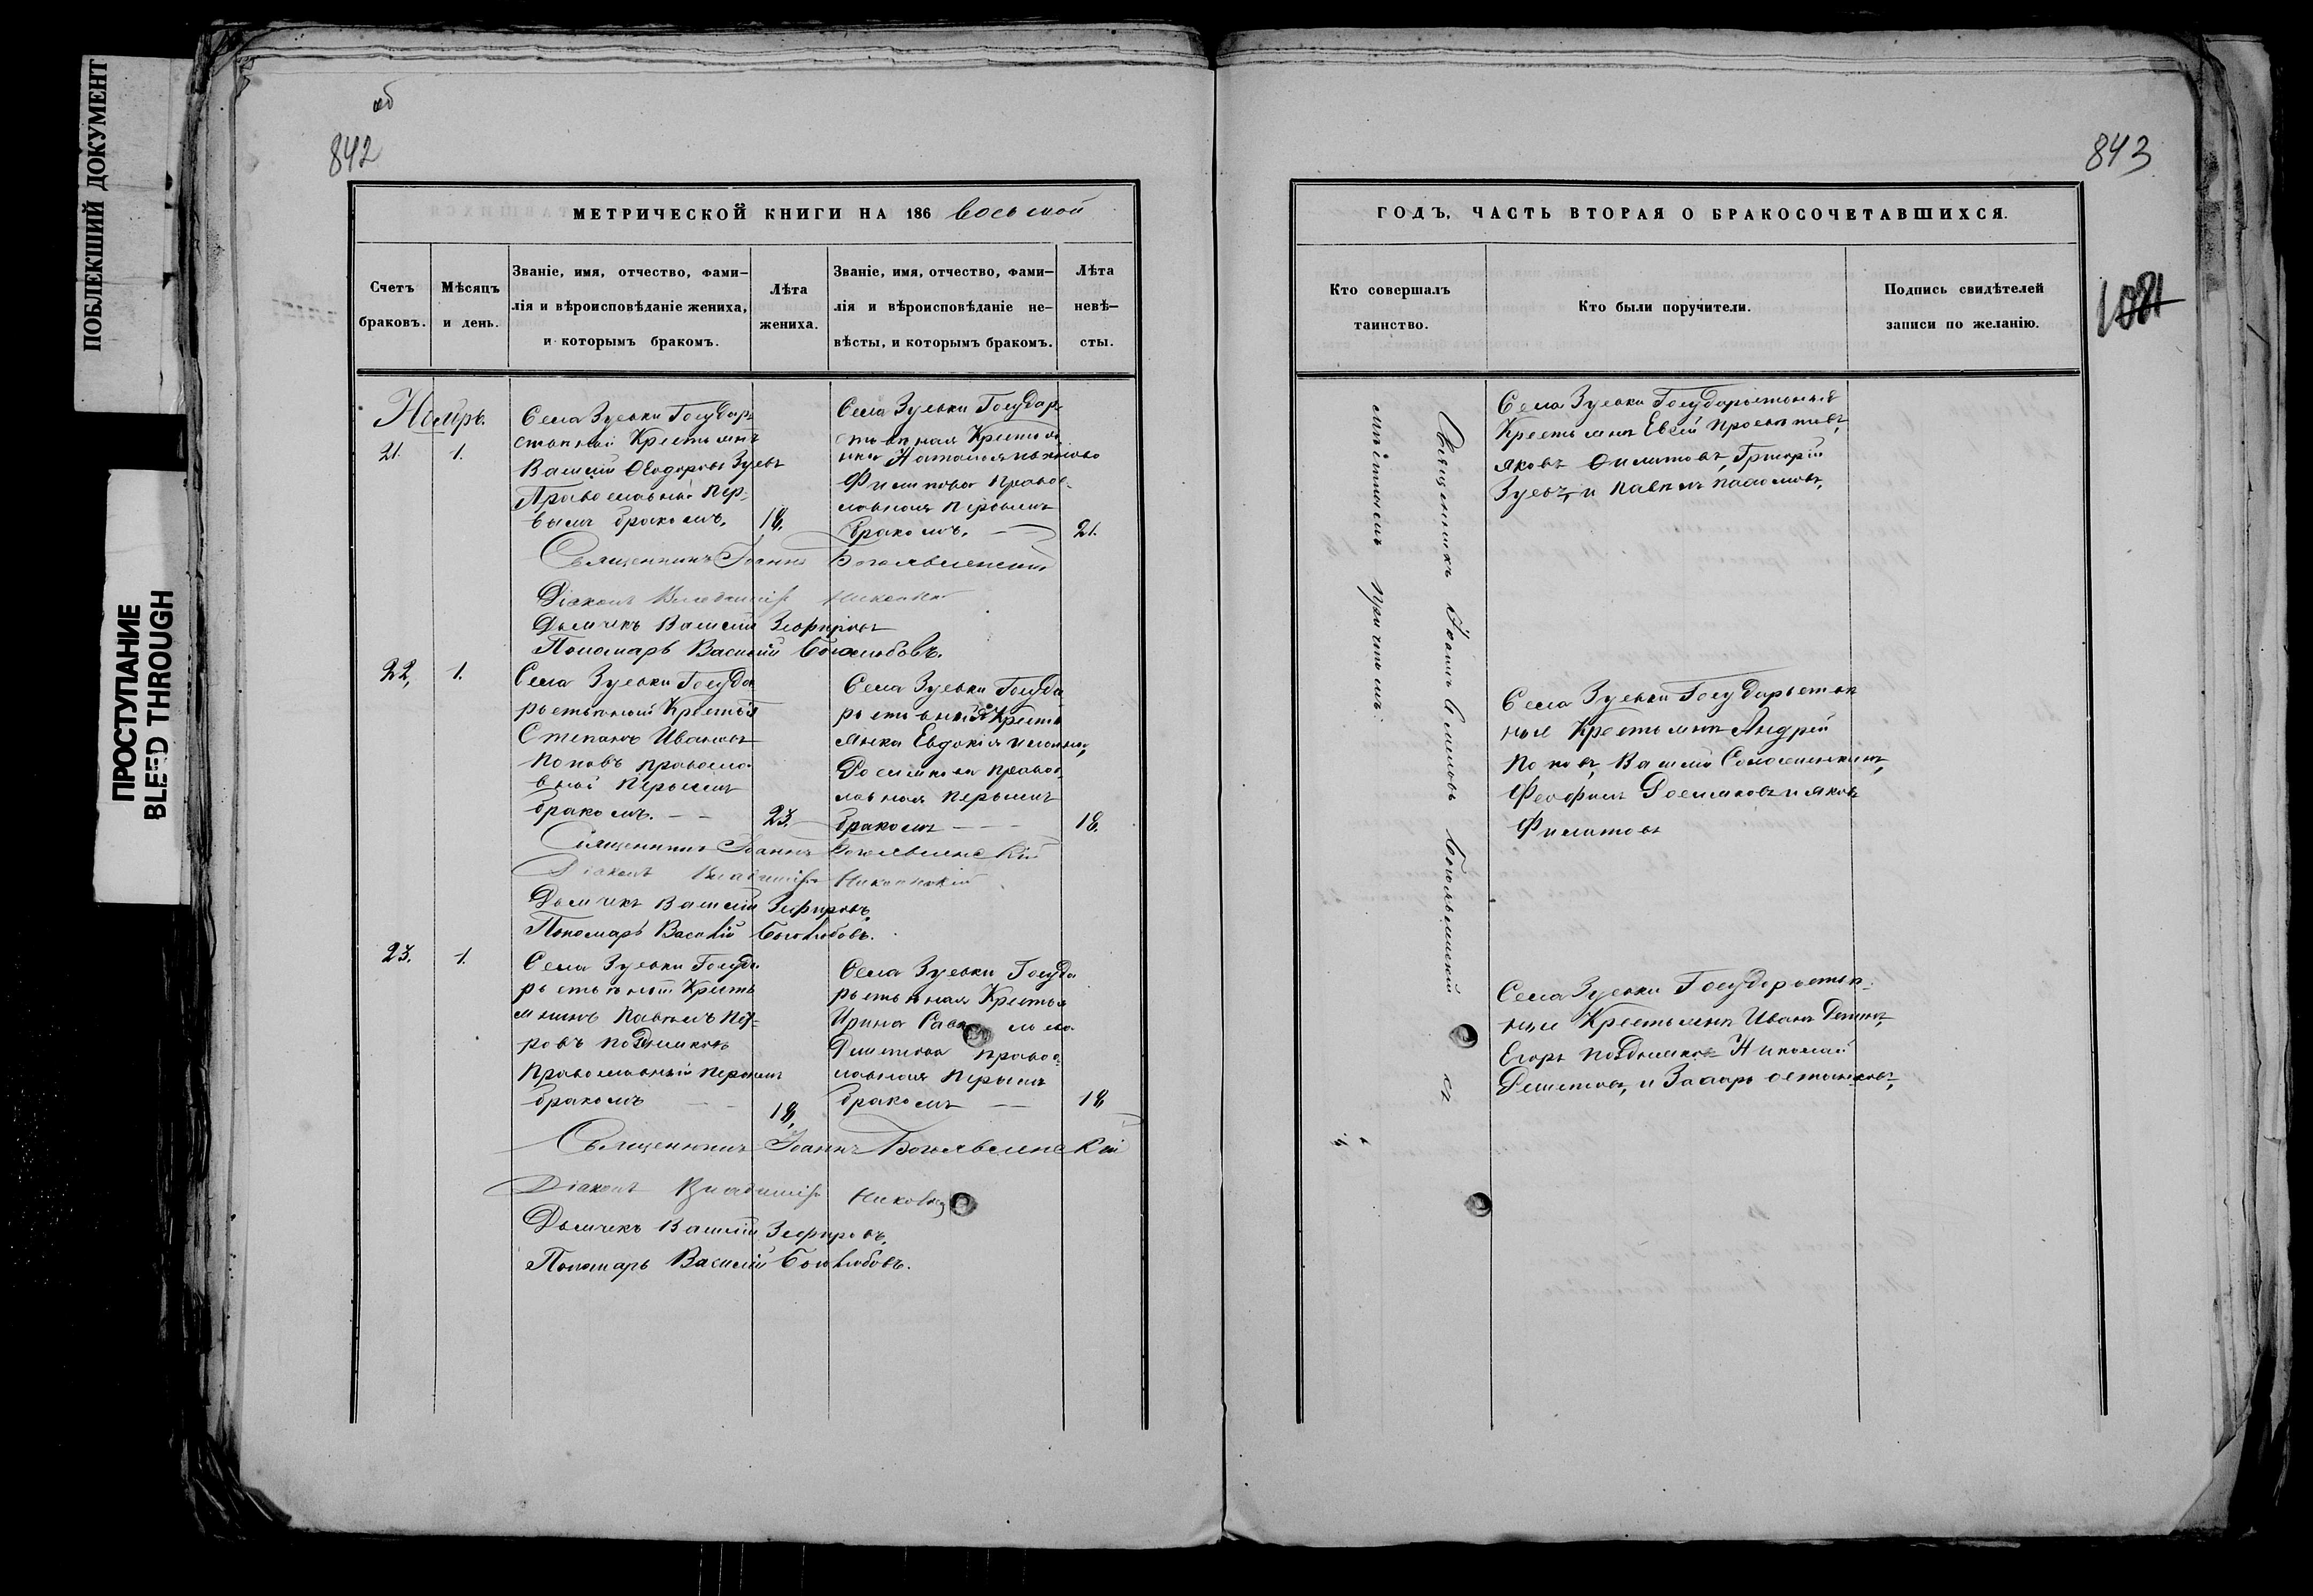 ПОБЛЕКШИЙ ДОКУМЕНТ
ПРОСТУПАНИЕ
BLEED THROUGH
об
842
МЕТРИЧЕСКОЙ КНИГИ НА 186 восьмой
Счетъ
браковъ.
Мѣсяцъ
и день.
Званіе, имя, отчество, фами-
лія и вѣроисповѣданіе жениха,
и которымъ бракомъ.
Лѣта
жениха.
Званіе, имя, отчество, фами-
лія и вѣроисповѣданіе не-
вѣсты, и которымъ бракомъ.
Лѣта
невѣ-
сты.
Ноябрь.
21.
1.
Села Зуевки Государ
ственный Крестьянъ
Василій Ѳеодоровъ Зуевъ
Православный пер-
вымъ бракомъ.
18.
Села Зуевки Государ
ственная Крестья
нка Наталія
Филипова Правос-
лавная первымъ
бракомъ.
21.
Священникъ Іоаннъ Богоявленскій
Діаконъ Владиміръ
Дьячекъ Василій Зефировъ
Пономарь Василій Боголюбовъ.
22,
1.
Села Зуевки Госуда
рственный Крестья
Степанъ Ивановъ
Поповъ правосла
вный первымъ
бракомъ.
23.
Села Зуевки Госуда
рственная Кресть
янка Евдокія
правос
лавная первымъ
бракомъ
18.
Священникъ Іоаннъ Богоявленскій
Діаконъ Владиміръ Никольскій
Дьячекъ Василій Зефировъ,
Пономарь Василій Боголюбовъ.
23.
1.
Села Зуевки Госуда
рственный Кресть
янинъ Павелъ Пет-
ровъ Поздняковъ
Православный первымъ
бракомъ
18,
Села Зуевки Госуда
рственная Крестья
Ирина
правос
лавная первымъ
бракомъ
18
Священникъ Іоаннъ Богоявленскій
Діаконъ Владиміръ
Дьячекъ Василій Зефировъ,
Пономарь Василій Боголюбовъ.
843
ГОДЪ, ЧАСТЬ ВТОРАЯ О БРАКОСОЧЕТАВШИХСЯ.
Кто совершалъ
таинство.
Кто были поручители.
Подпись свидѣтелей
записи по желанію.
Священникъ Іоаннъ Богоявленскій съ
причтомъ.
Села Зуевки Государственные
Крестьяне Евсей
Яковъ Филатовъ, Григорій
Зуевъ, и Павелъ
Села Зуевки Государствен
ные Крестьяне Андрей
Поповъ, Василій
Феофилъ и Яковъ
Филатовъ
Села Зуевки Государствен-
ные Крестьяне Иванъ
Егоръ Поздняковъ Николай
Решетовъ, и Захаръ